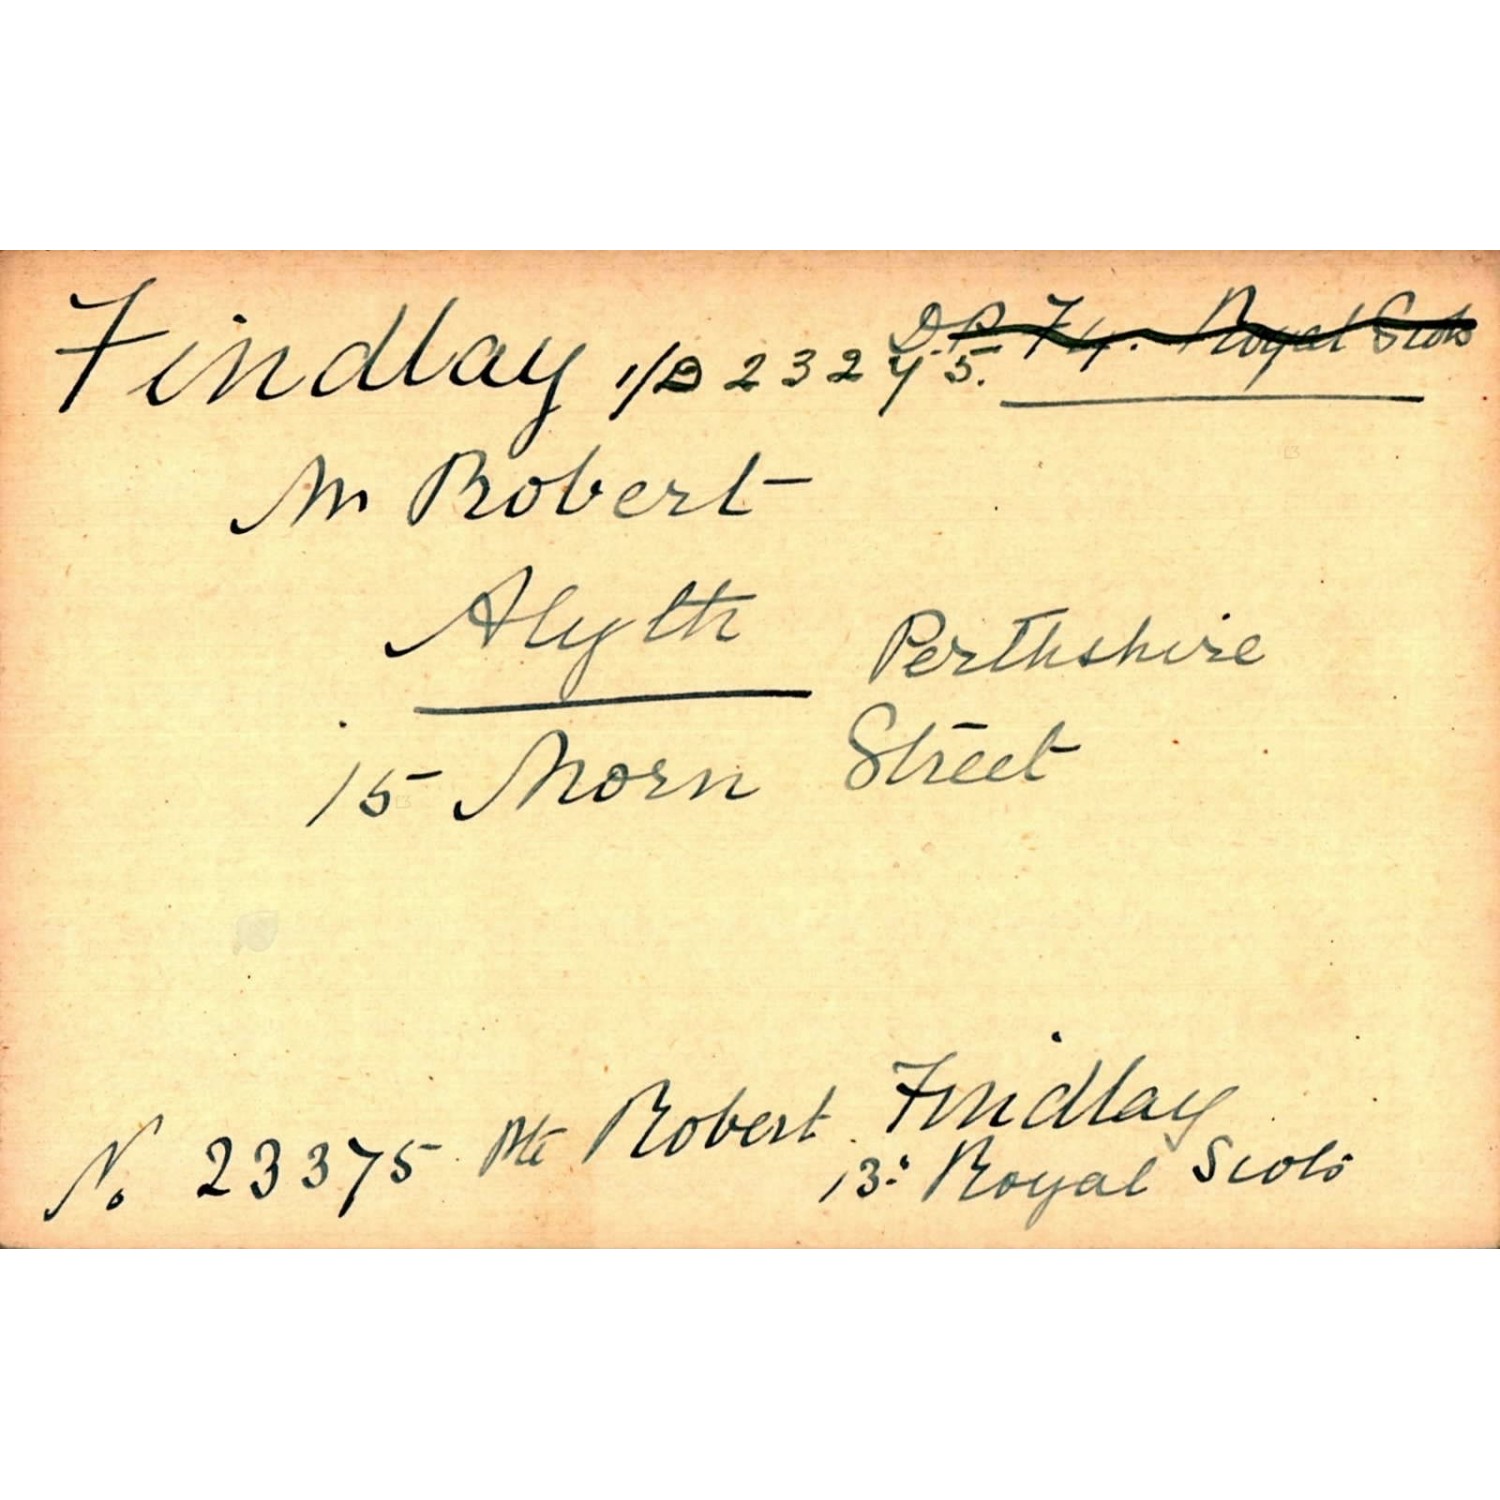 Findlay 1/D 23275. D.P. 74. Royal Scots
M Robert
Alyth Perthshire
15 Morn Street
No 23375 Pte Robert Findlay
13: Royal Scots